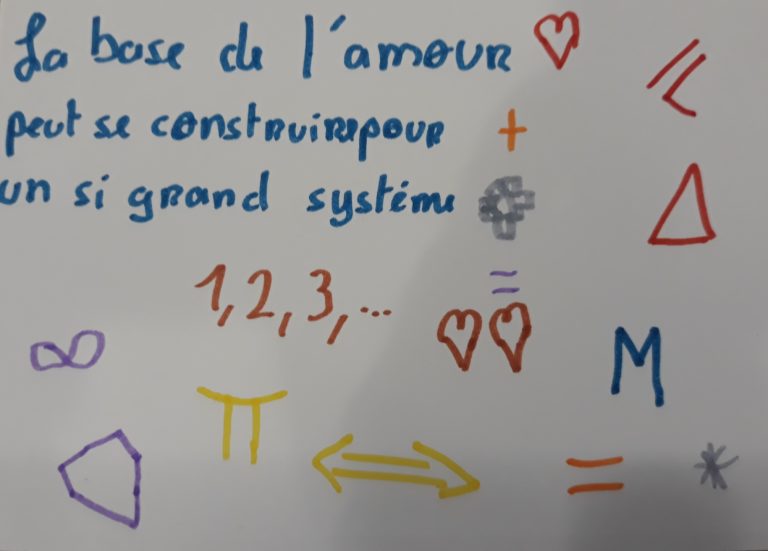 La base de l'amour ♡
peut se construire pour +
un si grand système
=
1, 2, 3, ...
∞
M
π
⇔
= *